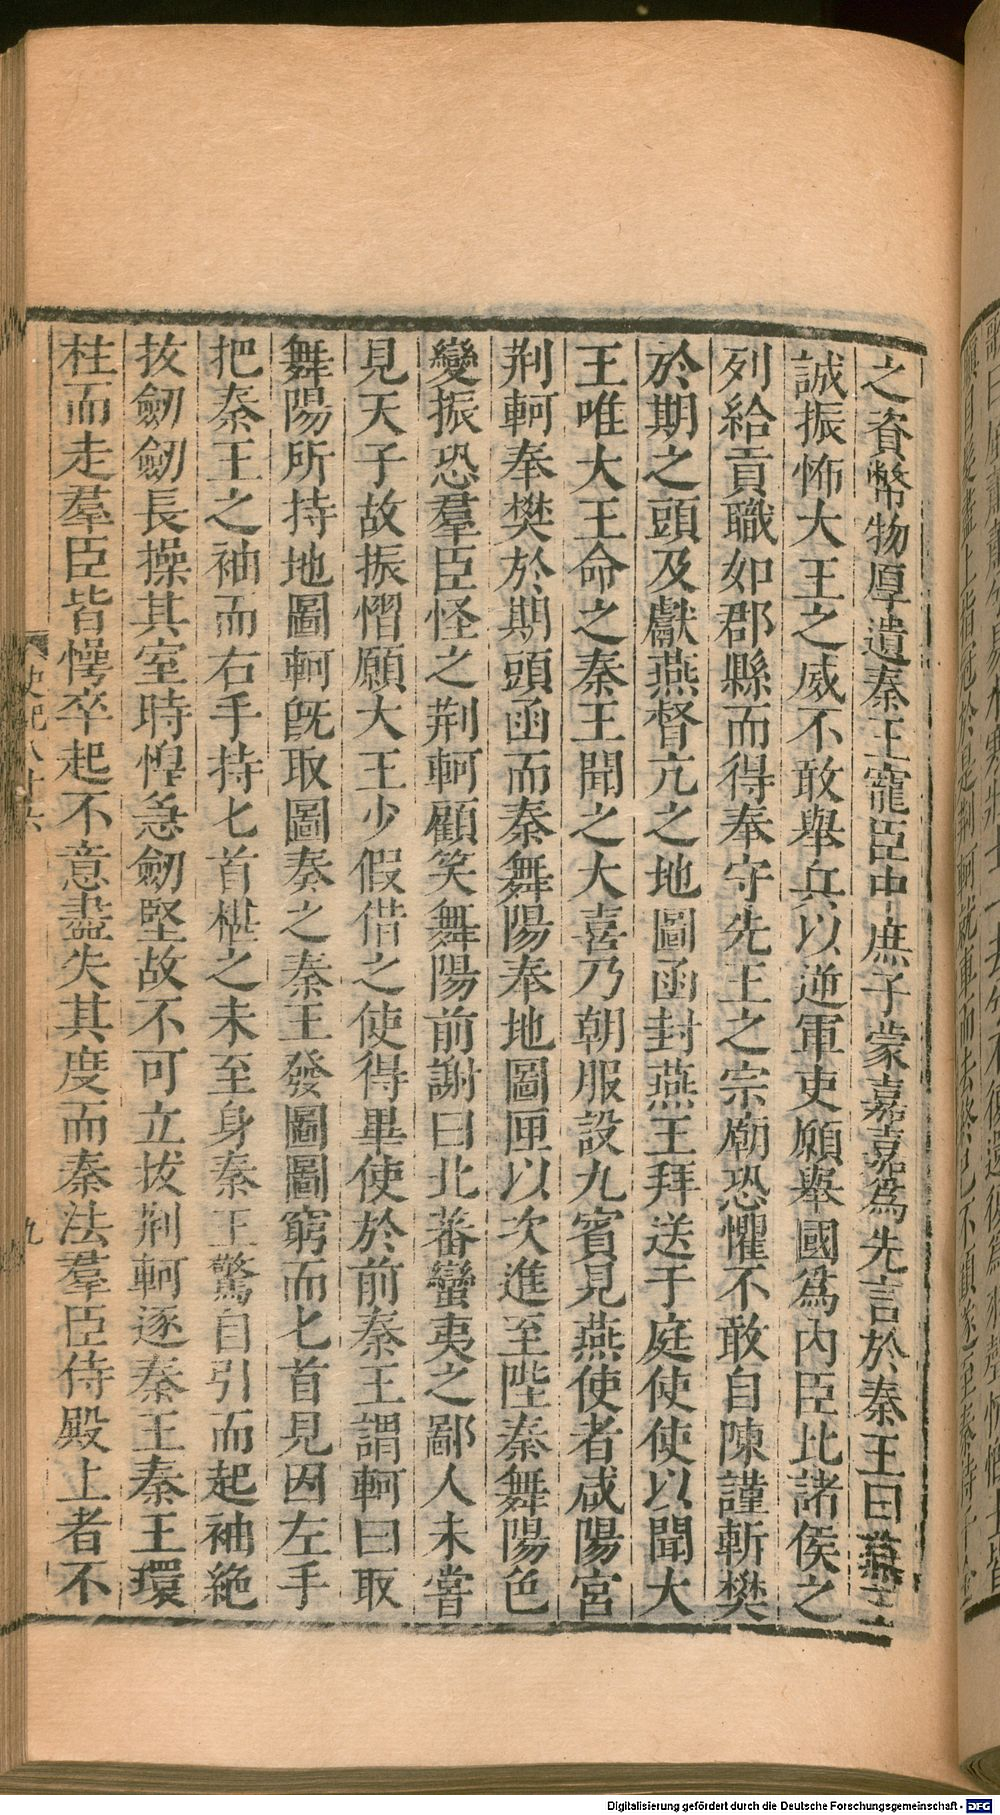 之資幣物厚遺秦王寵臣中庶子蒙嘉嘉爲先言於秦王曰燕王
誠振怖大王之威不敢舉兵以逆軍吏願舉國爲內臣比諸侯之
列給貢職如郡縣而得奉守先王之宗廟恐懼不敢自陳謹斬樊
於期之頭及獻燕督亢之地圖函封燕王拜送于庭使使以聞大
王唯大王命之秦王聞之大喜乃朝服設九賓見燕使者咸陽宮
荆軻奉樊於期頭函而秦舞陽奉地圖匣以次進至陛秦舞陽色
變振恐羣臣怪之荆軻顧笑舞陽前謝曰北蕃蠻夷之鄙人未嘗
見天子故振慴願大王少假借之使得畢使於前秦王謂軻曰取
舞陽所持地圖軻旣取圖奏之秦王發圖圖窮而匕首見因左手
把秦王之袖而右手持匕首椹之未至身秦王驚自引而起袖絶
拔劒劒長操其室時惶急劒堅故不可立拔荆軻逐秦王秦王環
柱而走羣臣皆愕卒起不意盡失其度而秦法羣臣侍殿上者不
史記八十六
九
Digitalisierung gefördert durch die Deutsche Forschungsgemeinschaft - DFG